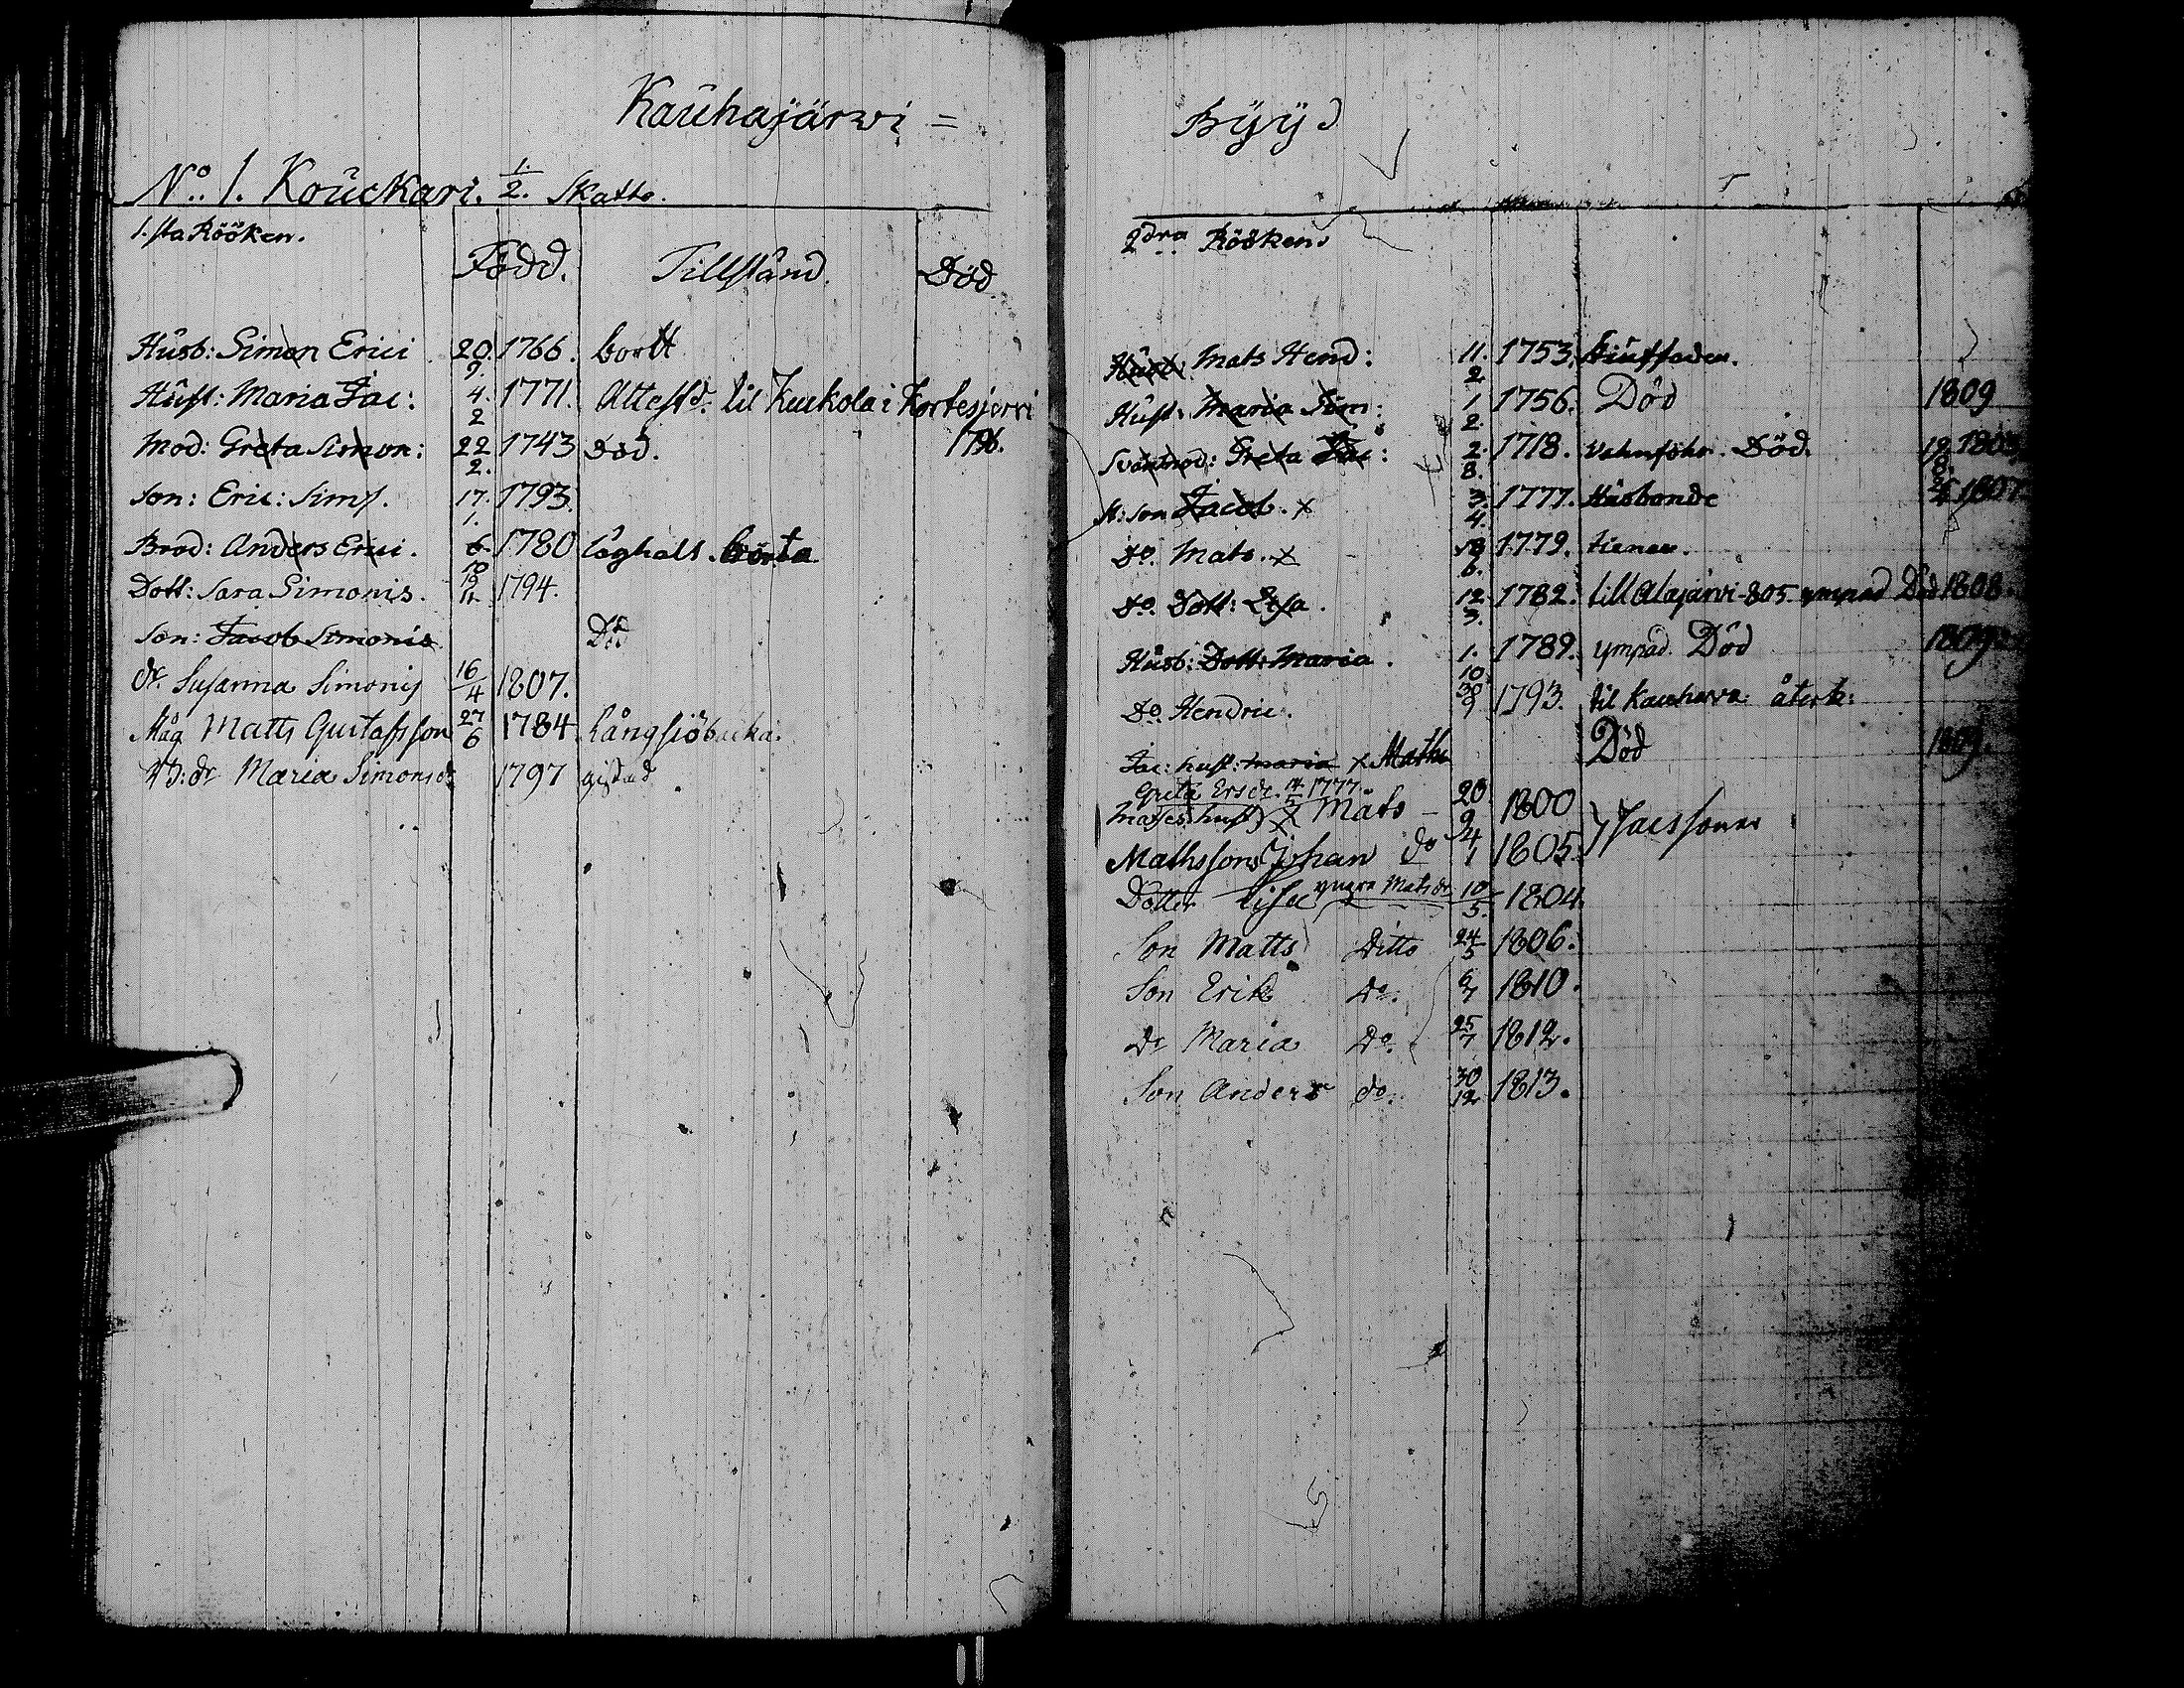 Kauhajärwi =
No. 1. Kouckari. 1/2. Skatto.
1. sta Rööken.
Född. Tillstånd. Död
Husb: Simon Erici 20. 9. 1766. bortt
Hust: Maria Jac: 4. 2 1771. Attestd. til Kuckola i Kortesjervi
Mod: Greta Simon: 22 2. 1743 död. 1796.
Son: Eric: Sims. 17. 1. 1793.
Brod: Anders Erici. 6. 10 1780 borta
Dott: Sara Simonis. 19 11 1794.
Son: Jacob Simonis Död
dr. Susanna Simonis 16/4 1807.
Måg Matts Gustafsson 27/6 1784 Långsiöbacka.
dr Maria Simonsdr 1797 gistad
Byy
2dra Rööken
Husb: Mats Hend: 11. 2 1753.
Hust: Maria Sim: 1 2. 1756. Död 1809
Svärmod: Greta Jac: 2. 8. 1718. Död. 1803
St: son Jacob. x 3. 4. 1777. Husbonde 1807
Do. Mats. x 6. 1779. tienar.
Do. Dott: Lisa. 12. 3. 1782. till Alajärvi 805 ympad Död 1808.
Husb: Dott: Maria. 1. 10. 1789. ympad. Död 1809
Do. Hendric. 30 9 1793. til Kauhava återk:
Jac: hust: Maria x Maths Död 1809.
Greta Ersdr. 1777.
Matses hust) x Mats 20 9 1800 } Jacssöner
Mathsson Johan do 4 1 1805.
Dotter Lisa yngre Matsdr 10 5. 1804.
Son Matts Ditto 24 5 1806.
Son Erik Do. 6 7 1810.
Dr Maria Do. 25 7 1812.
Son Anders do. 30 12 1813.